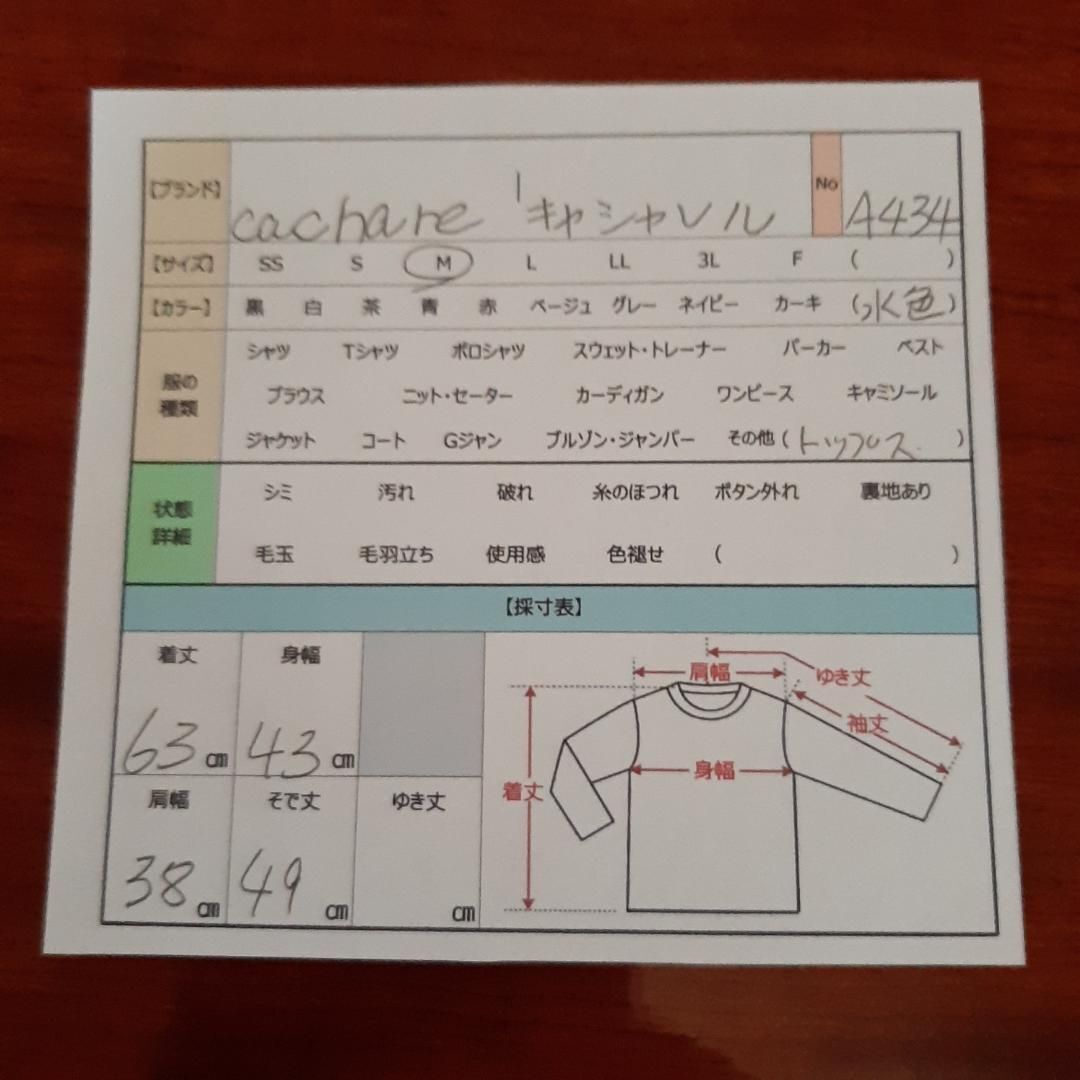 【ブランド】 cachare キャシャレル No A434
【サイズ】 SS S M L LL 3L F ( )
【カラー】 黒 白 茶 青 赤 ベージュ グレー ネイビー カーキ (水色)
服の種類
シャツ Tシャツ ポロシャツ スウェット・トレーナー パーカー ベスト
ブラウス ニット・セーター カーディガン ワンピース キャミソール
ジャケット コート Gジャン ブルゾン・ジャンパー その他 (トップス)
状態詳細
シミ 汚れ 破れ 糸のほつれ ボタン外れ 裏地あり
毛玉 毛羽立ち 使用感 色褪せ ( )
【採寸表】
着丈 身幅
63 cm 43 cm
肩幅 そで丈 ゆき丈
38 cm 49 cm cm
肩幅 ゆき丈
袖丈
身幅
着丈